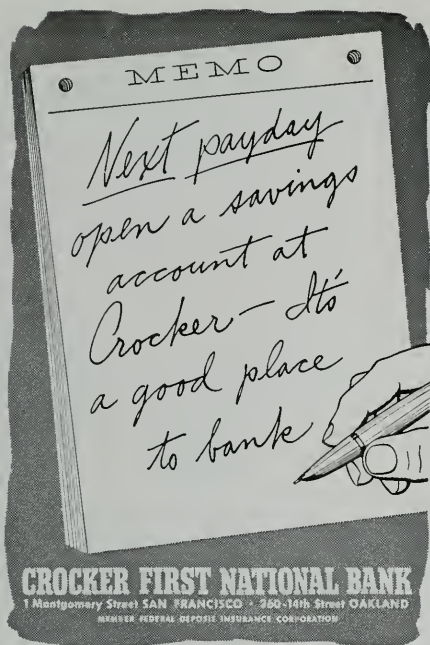 MEMO
Next payday
open a savings
account at
Crocker – It's
a good place
to bank
CROCKER FIRST NATIONAL BANK
1 Montgomery Street SAN FRANCISCO • 360-14th Street OAKLAND
MEMBER FEDERAL DEPOSIT INSURANCE CORPORATION